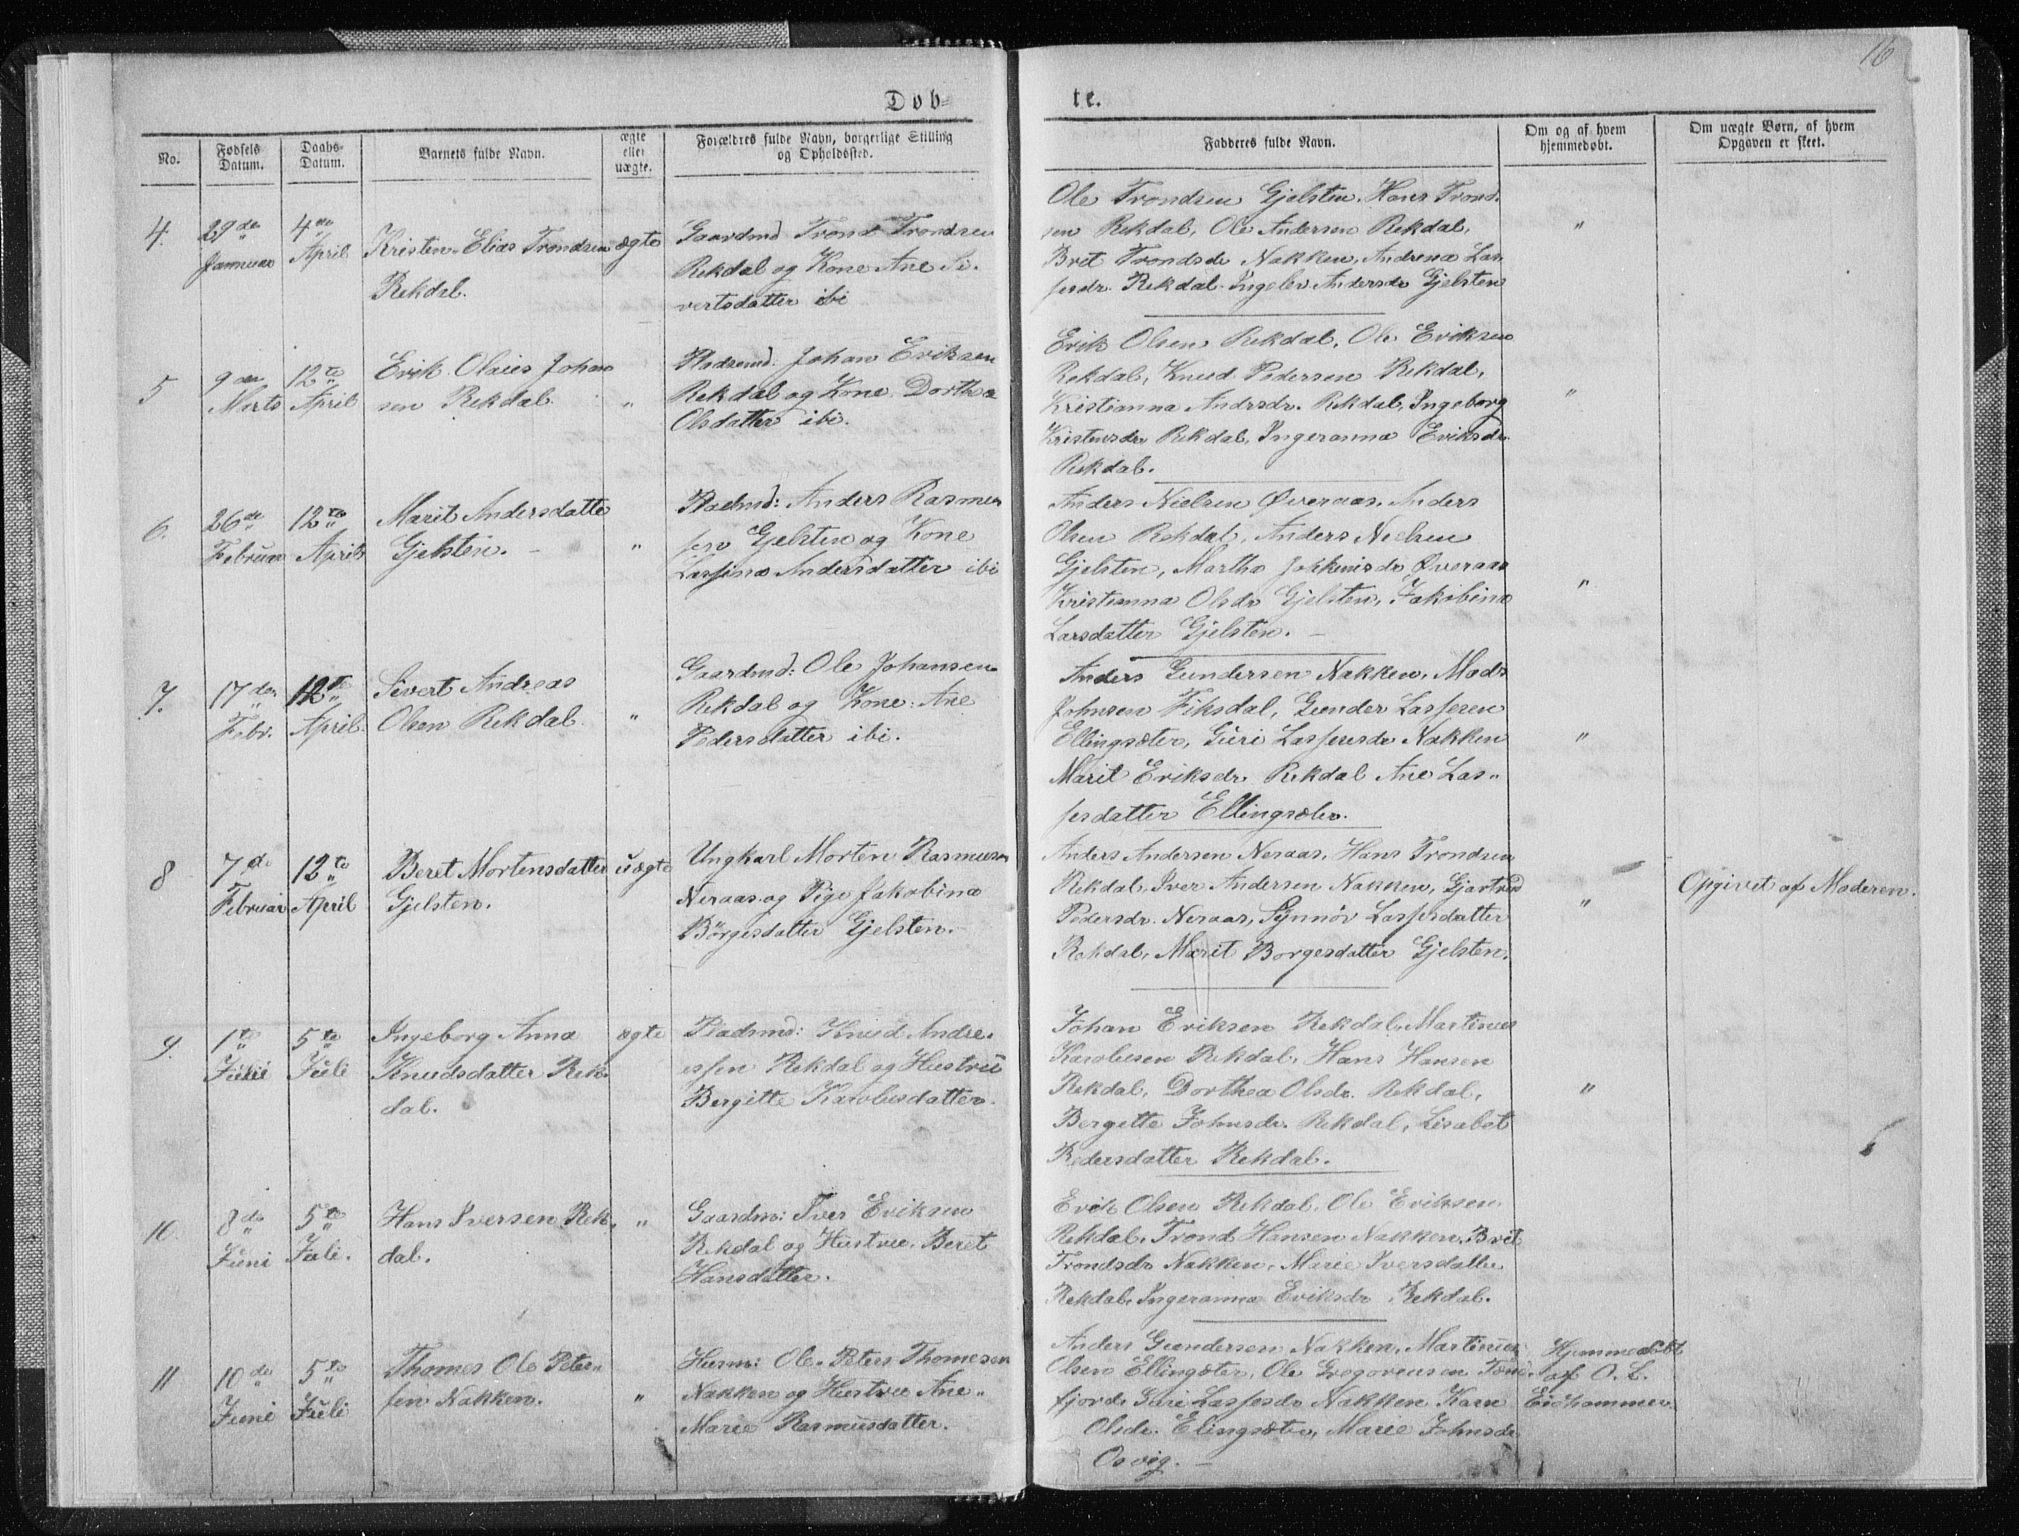 16
Døb=
te.
No.
Fødsels
Datum.
Daabs-
Datum.
Barnets fulde Navn.
ægte
eller
uægte.
Forældres fulde Navn, borgerlige Stilling
og Opholdssted.
Fadderes fulde Navn.
Om og af hvem
hjemmedøbt.
Om uægte Børn, af hvem
Opgaven er skeet.
4.
29de
Januar
4de
April
Kristen Elias Trondsen
Rekdal.
ægte
Gaardmd Trond Trondsen
Rekdal og Kone Ane Si-
vertsdatter ibi
Ole Trondsen Gjelsten, Hans Trond-
sen Rekdal, Ole Andersen Rekdal,
Brit Trondsdr Nakken, Andrena Las-
sesdr. Rekdal. Ingelev Andersdr Gjelsten
"
5
9de
Marts
12te
April
Erik Olaies Johan
sen Rekdal.
"
Pladsmd. Johan Eriksen
Rekdal og Kone Dorthea
Olsdatter ibi.
Erik Olsen Rekdal, Ole Eriksen
Rekdal, Knud Pedersen Rekdal,
Kristianna Andrsdr. Rekdal, Ingeborg
Kristensdr Rekdal, Ingeranna Eriksdr.
Rekdal.
"
6.
26de
Februar
12te
April
Marit Andersdatte
Gjelsten. -
"
Pladsmd: Anders Rasmus
sen Gjelsten og Kone
Lassina Andersdatter ibi
Anders Nielsen Øveraas, Anders
Olsen Rekdal, Anders Nielsen
Gjelsten, Martha Jokkumsdr Øveraas
Kristianna Olsdr Gjelsten, Jakobina
Larsdatter Gjelsten. -
"
7.
17de
Febr.
12te
April.
Sivert Andreas
Olsen Rekdal
"
Gaardmd: Ole Johansen
Rekdal og Kone: Ane
Pedersdatter ibi.
Anders Gundersen Nakken, Mads
Johnsen Fiksdal, Gunder Lassesen
Ellingsæter, Guri Lassesdr Nakken
Marit Eriksdr Rekdal Ane Las-
sesdatter Ellingsæter.
"
8
7de
Februar
12te
April
Beret Mortensdatter
Gjelsten.
uægte
Ungkarl Morten Rasmusen
Neraas og Pige Jakobina
Börgesdatter Gjelsten.
Anders Andersen Neraas, Hans Trondsen
Rekdal, Iver Andersen Nakken, Gjertrud
Pedersdr. Neraas, Synnöv Lassesdatter
Rekdal, Marit Borgesdatter Gjelsten.
"
Opgivet af Moderen.
9.
1te
Juni
5te
Juli
Ingeborg Anna
Knudsdatter Rek-
dal.
ægte
Pladsmd: Knud Andre-
assen Rekdal og Hustru
Bergitte Karolusdatter.
Johan Eriksen Rekdal, Martinus
Karolusen Rekdal, Hans Hansen
Rekdal, Dorthea Olsdr. Rekdal,
Bergette Johnsdr. Rekdal, Lisabet
Pedersdatter Rekdal.
"
10.
8de
Juni
5te
Juli.
Hans Iversen Rek-
dal.
"
Gaardm: Iver Eriksen
Rekdal og Hustru Beret
Hansdatter.
Erik Olsen Rekdal, Ole Eriksen
Rekdal, Trond Hansen Nakken, Brit
Trondsdr Nakken, Marie Iversdatter
Rekdal, Ingeranna Eriksdr Rekdal.
11
10de
Juni
5te
Juli
Thomes Ole Peter-
sen Nakken.
"
Husm: Ole Peter Thomesen
Nakken og Hustru Ane
Marie Rasmusdatter.
Anders Gundersen Nakken, Martinus
Olsen Ellingsæter, Ole Gregoriusen
fjord, Guri Lassesdr Nakken Karn
Olsdr. Elingsæter, Marie Johnsdr
Osvig. -
Hjemmedöbt
af O. L.
Eidhammer.